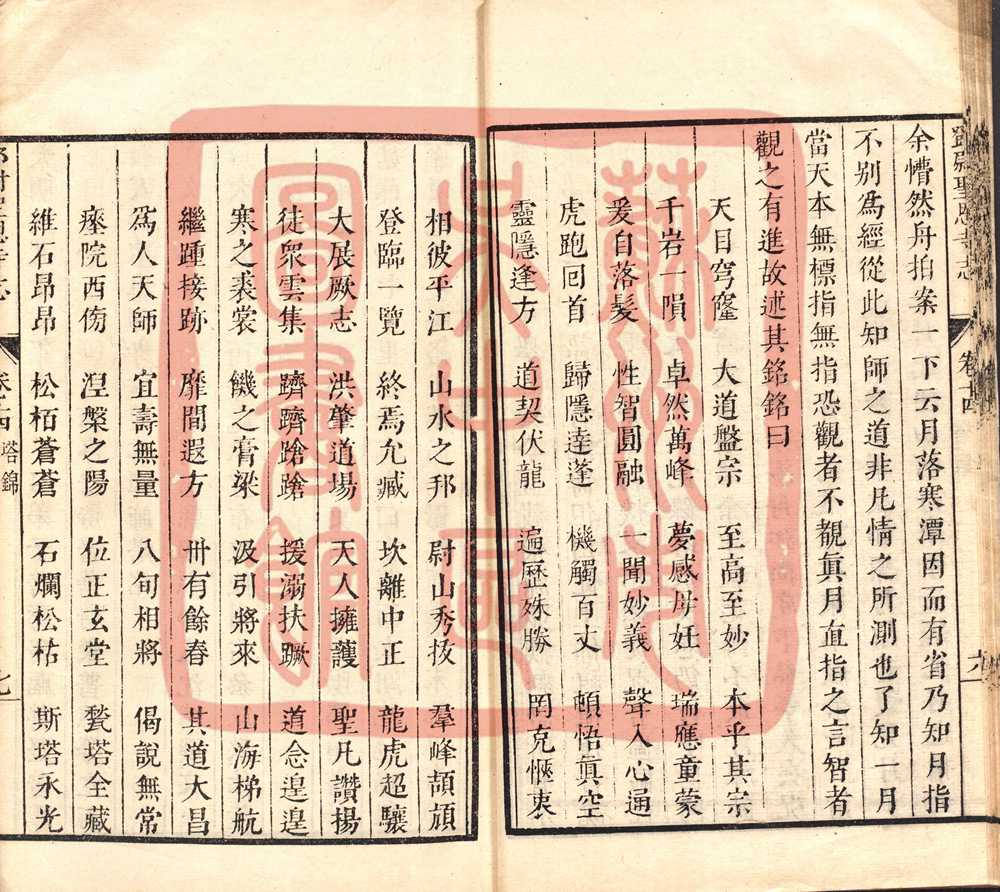 鄧尉聖恩寺志
卷十四
余懵然舟拍案一下云月落寒潭因而有省乃知月指
不别爲經從此知師之道非凡情之所測也了知一月
當天本無標指無指恐觀者不覩眞月直指之言智者
觀之有進故述其銘銘曰
天目穹窿 大道盤宗 至高至妙 本乎其宗
千岩一隕 卓然萬峰 夢感母妊 瑞應童蒙
爰自落髮 性智圓融 一聞妙義 聲入心通
虎跑回首 歸隱達蓬 機觸百丈 頓悟眞空
靈隱逢方 道契伏龍 遍歷姝勝 罔克愜衷
相彼平江 山水之邦 尉山秀技 羣峰頡頏
登臨一覽 終焉允臧 坎離中正 龍虎超驤
大展厥志 洪肇道場 天人擁護 聖凡讚揚
徒衆雲集 躋躋蹌蹌 援溺扶蹶 道念遑遑
寒之裘裳 饑之膏梁 汲引將來 山海梯航
繼踵接跡 靡間遐方 卅有餘春 其道大昌
爲人天師 宜壽無量 八旬相將 偈說無常
瘞院西傍 湼槃之陽 位正玄堂 甃塔全藏
維石昂昂 松栢蒼蒼 石爛松枯 斯塔永光
卷十四 塔錦 七
蘇州市
吳中區
圖書館